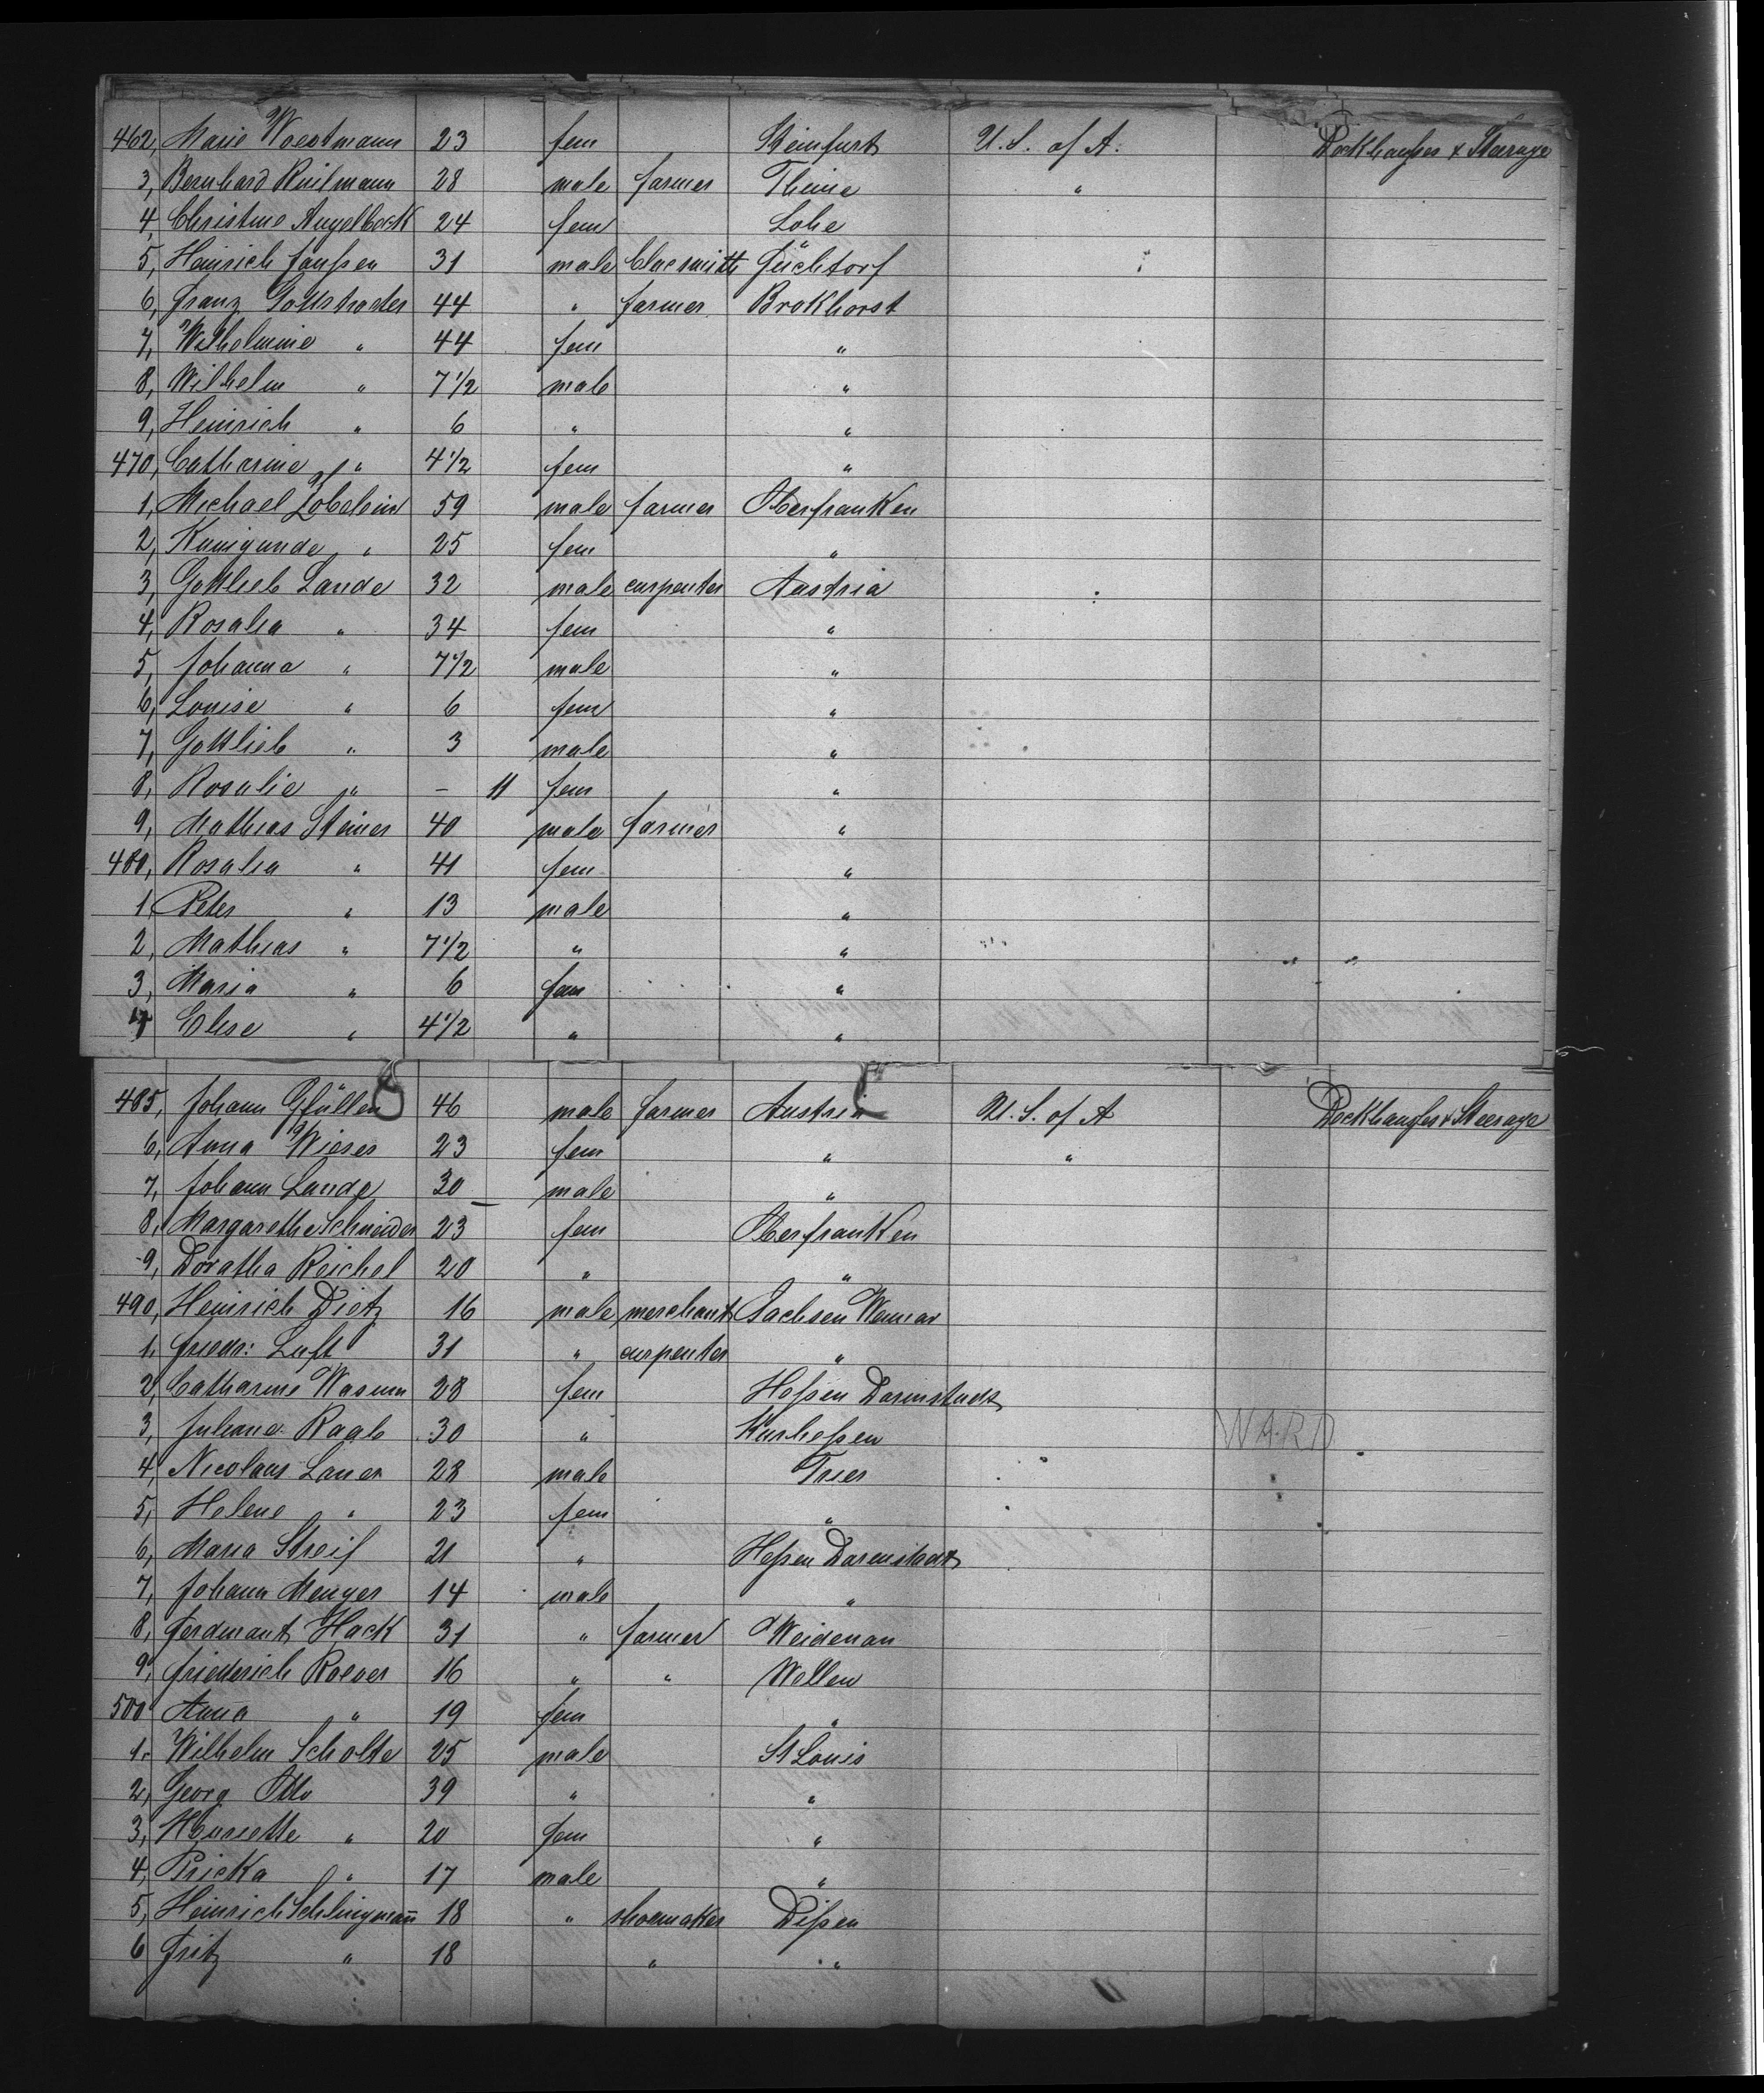 462, Marie Woestmann 23 fem Steinfurt U. S. of A. Deckhauses & Steerage
3, Bernhard Reilmann 28 male farmer Theine "
4, Christine Angelbeck 24 fem Lohe
5, Heinrich Janßen 31 male Clacsmith Füchtorf
6, Franz 44 " farmer Brokhorst
7, Wilhelmine " 44 fem "
8, Wilhelm " 7 1/2 male "
9, Heinrich " 6 " "
470, Catharine " 4 1/2 fem "
1, Michael Zobelein 59 male farmer Oberfranken
2, Kunigunde " 25 fem "
3, Gottlieb Lande 32 male carpenter Austria
4, Rosalia " 34 fem "
5, Johanna " 7 1/2 male "
6, Louise " 6 fem "
7, Gottlieb " 3 male "
8, Rosalie " – 11 fem "
9, Mathias Steiner 40 male farmer "
480, Rosalia " 41 fem "
1, Peter " 13 male "
2, Mathias " 7 1/2 " " " "
3, Maria " 6 fem "
4 Elise " 4 1/2 " "
485, Johann Gfüllen 46 male farmer Austria U. S. of A Deckhauses & Steerage
6, Anna Wieser 23 fem " "
7, Johann Lande 30 male "
8, Margarethe Schneider 23 fem Oberfranken
9, Doratha Reichel 20 " "
490, Heinrich Dietz 16 male merchant Sachsen Weimar
1, Friedr: Luft 31 " carpenter "
2, Catharine Wasum 28 fem Heßen Darmstadt
3, Juliane Raab 30 " Kurheßen WARD
4, Nicolaus Lauer 28 male Trier
5, Helene " 23 fem "
6, Maria Streif 21 " Heßen Darmstadt
7, Johann Menger 14 male "
8, Ferdinant Hack 31 " farmer Weidenau
9, Friederich Roever 16 " " Wellen
500 Anna " 19 fem "
1, Wilhelm Scholte 25 male St Louis
2, Georg Otto 39 " "
3, Henriette " 20 fem "
4, Pricka " 17 male "
5, Heinrich Schlingman̅ 18 " shoemaker Dißen
6 Fritz " 18 " "